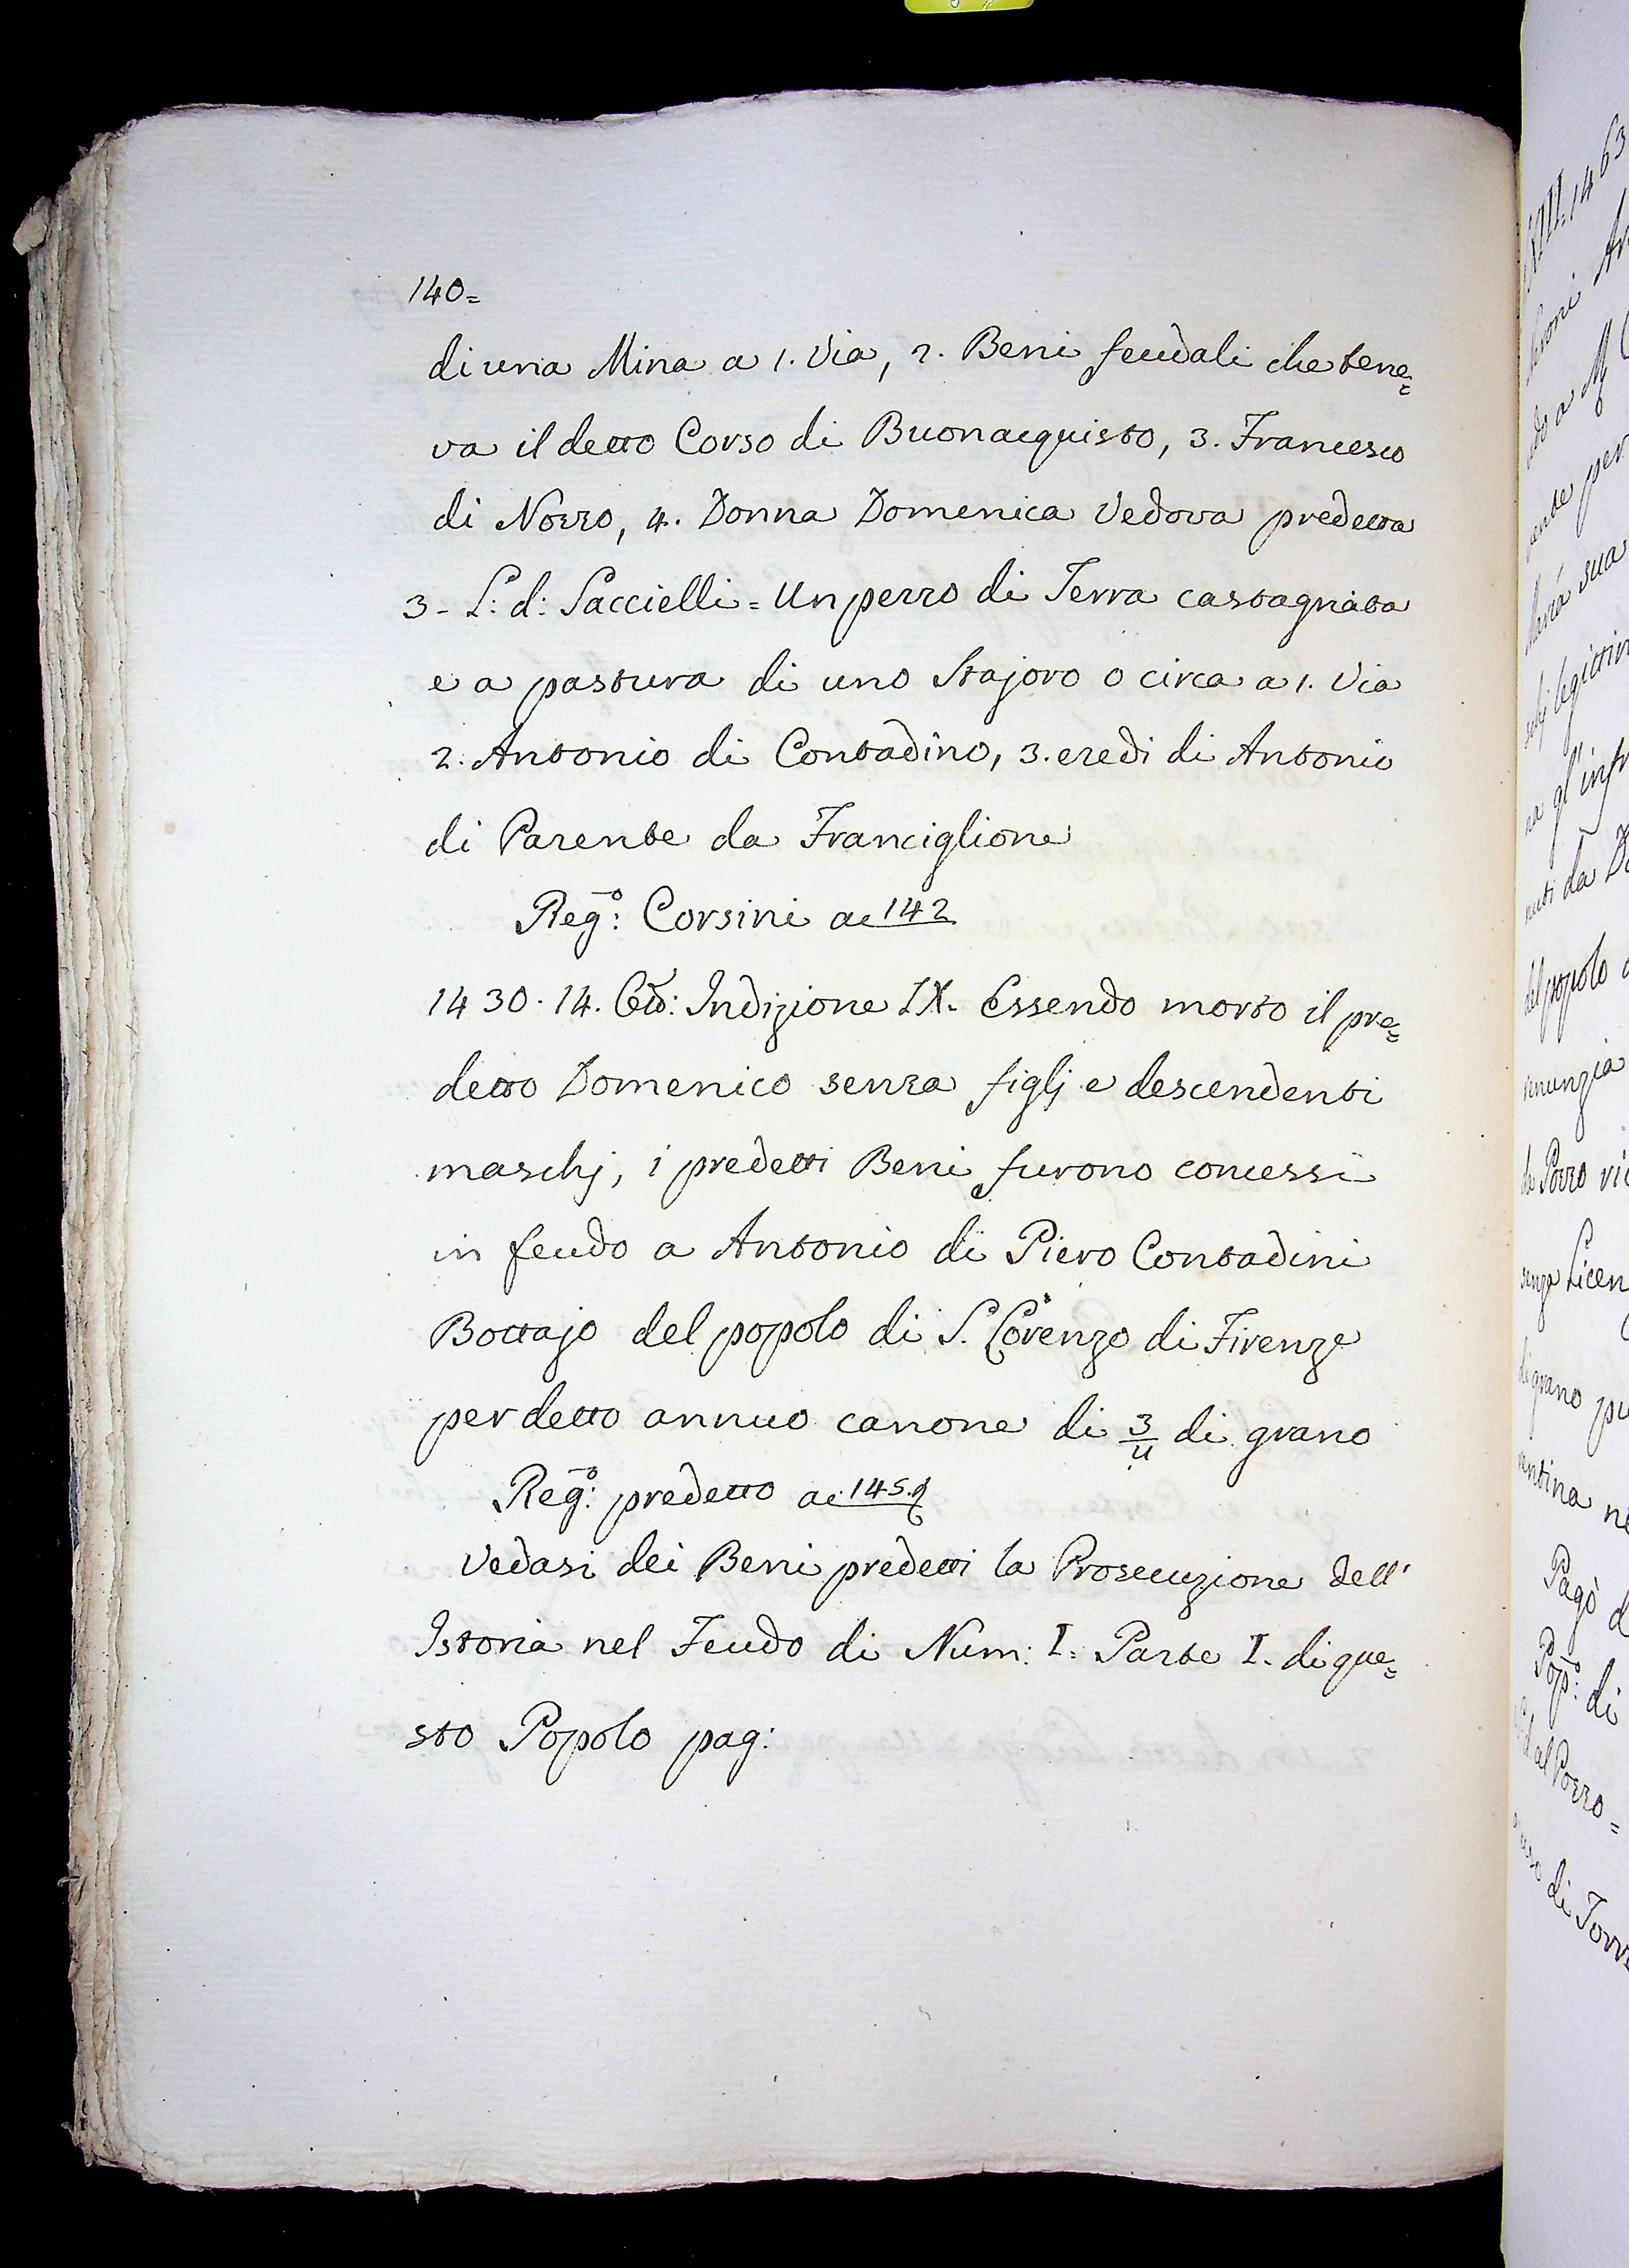 140=
di una Mina a 1. Via, 2. Beni feudali che tene=
va il detto Corso di Buonacquisto, 3. Francesco
di Nozzo, 4. Donna Domenica Vedova predetta
3- L: d: Saccielli = Un pezzo di Terra castagniata
e a pastura di uno Stajoro o circa a 1. Via
2. Antonio di Contadino, 3. eredi di Antonio
di Parente da Franciglione
Reg:º Corsini ac 142
1430. 14. Indizione IX. Essendo morto il pre=
detto Domenico senza figlj e descendenti
maschj, i predetti Beni furono concessi
in feudo a Antonio di Piero Contadini
Bottajo del popolo di S. Lorenzo di Firenze
per detto annuo canone di 3/4 di grano
Reg:º predetto ac 145.
Vedasi dei Beni predetti la Prosecuzione dell'
Istoria nel Feudo di Num: I. Parte I. di que=
sto Popolo pag:
XIII. 1463
sua
da
del popolo
renunzia
Pozzo
senza Licen
di grano
Pagò d
Pop:º di
al Pozzo=
di Torre